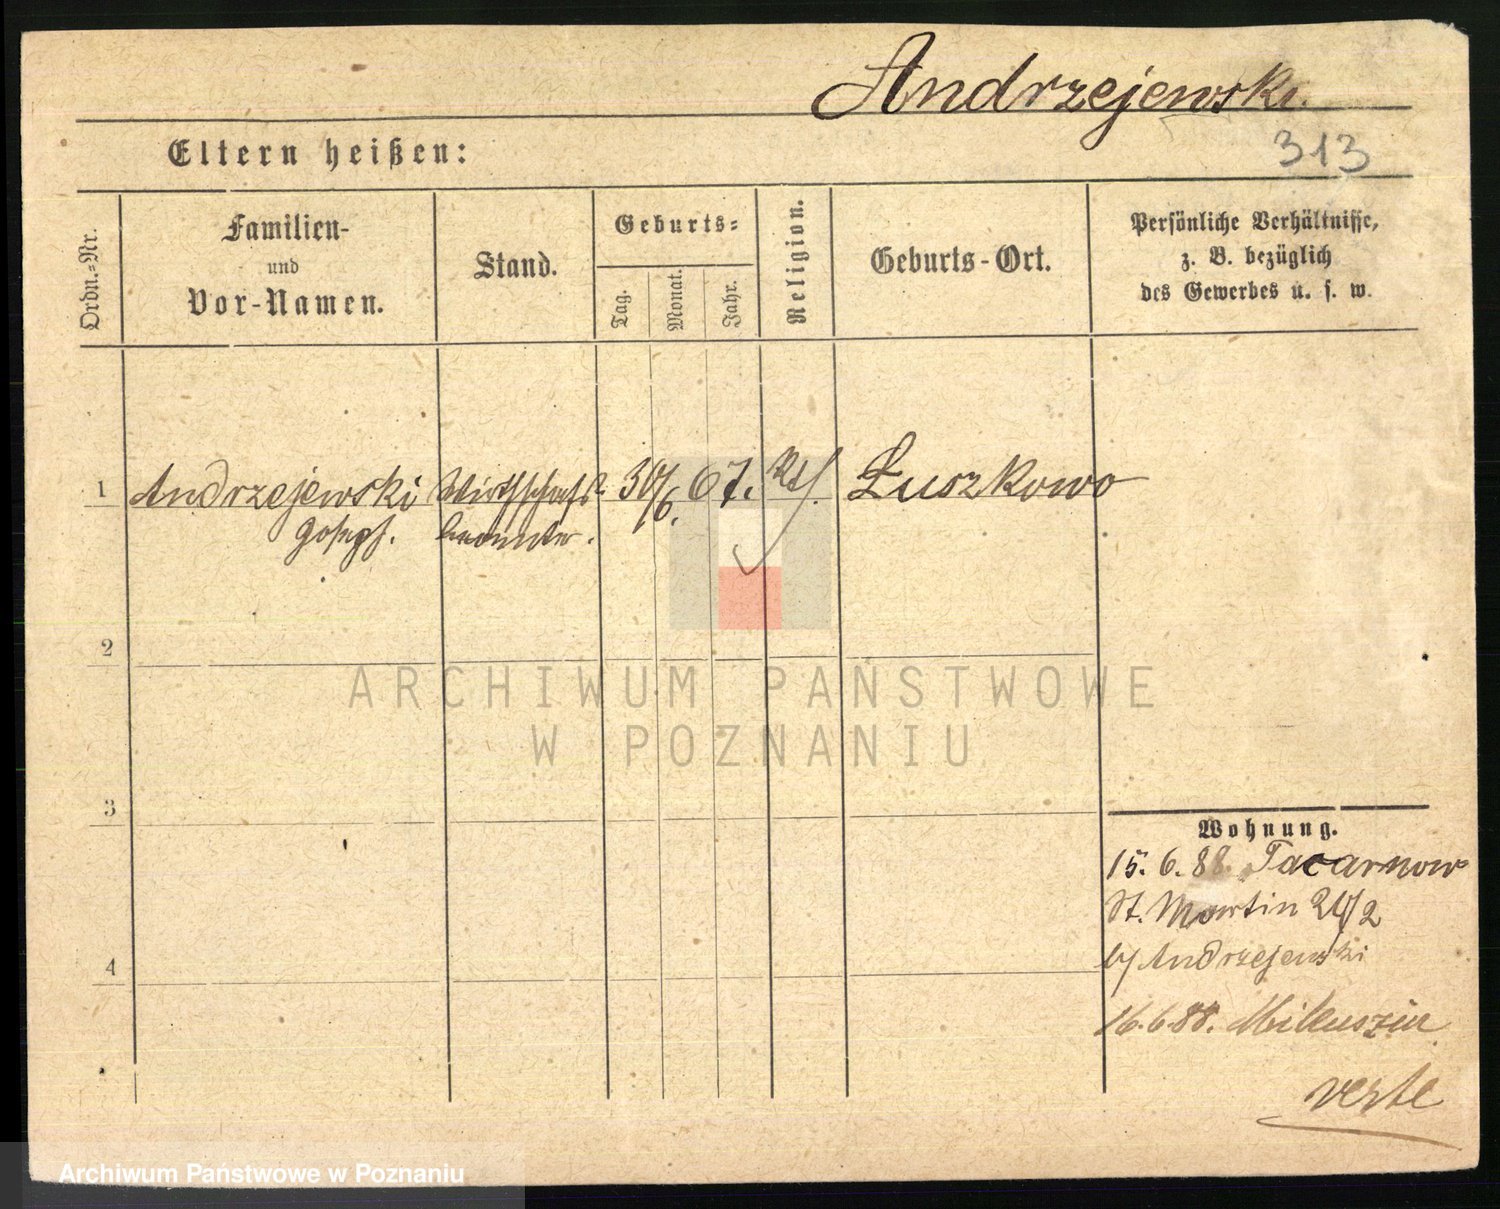 Andrzejewski.
313
Eltern heißen:
Ordn.-Nr.
Familien-
und
Vor-Namen.
Stand.
Geburts-
Tag.
Monat.
Jahr.
Religion.
Geburts-Ort.
Persönliche Verhältnisse,
z. B. bezüglich
des Gewerbes u. s. w.
1 Andrzejewski Wirthschafts 30/6. 67. Kth. Łuszkowo
Joseph. beamter.
2
3
4
Wohnung.
15. 6. 88.
St. Martin 24/2
b/ Andrzejewski
16. 6. 88. Mikuszin
verte
ARCHIWUM PAŃSTWOWE
W POZNANIU
Archiwum Państwowe w Poznaniu